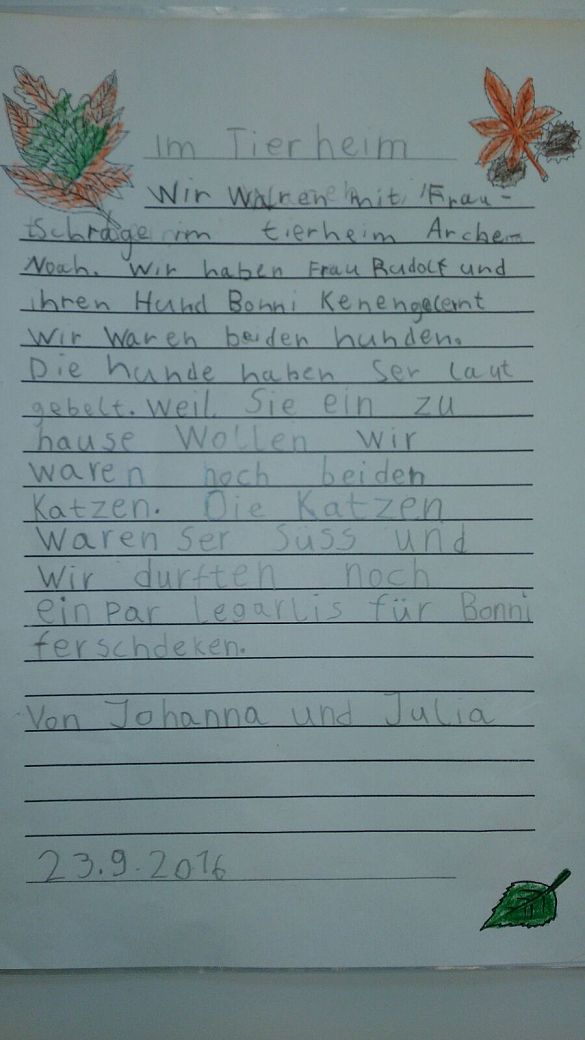 Im Tierheim
Wir waren mit Frau-
Schrage im tierheim Arche-
Noah. Wir haben Frau Rudolf und
ihren Hund Bonni Kenengelernt
Wir waren beiden hunden.
Die hunde haben Ser laut
gebelt. Weil Sie ein zu
hause Wollen Wir
waren noch beiden
Katzen. Die Katzen
Waren Ser Süss und
Wir durften noch
ein par Legarlis für Bonni
ferschdeken.
Von Johanna und Julia
23.9.2016